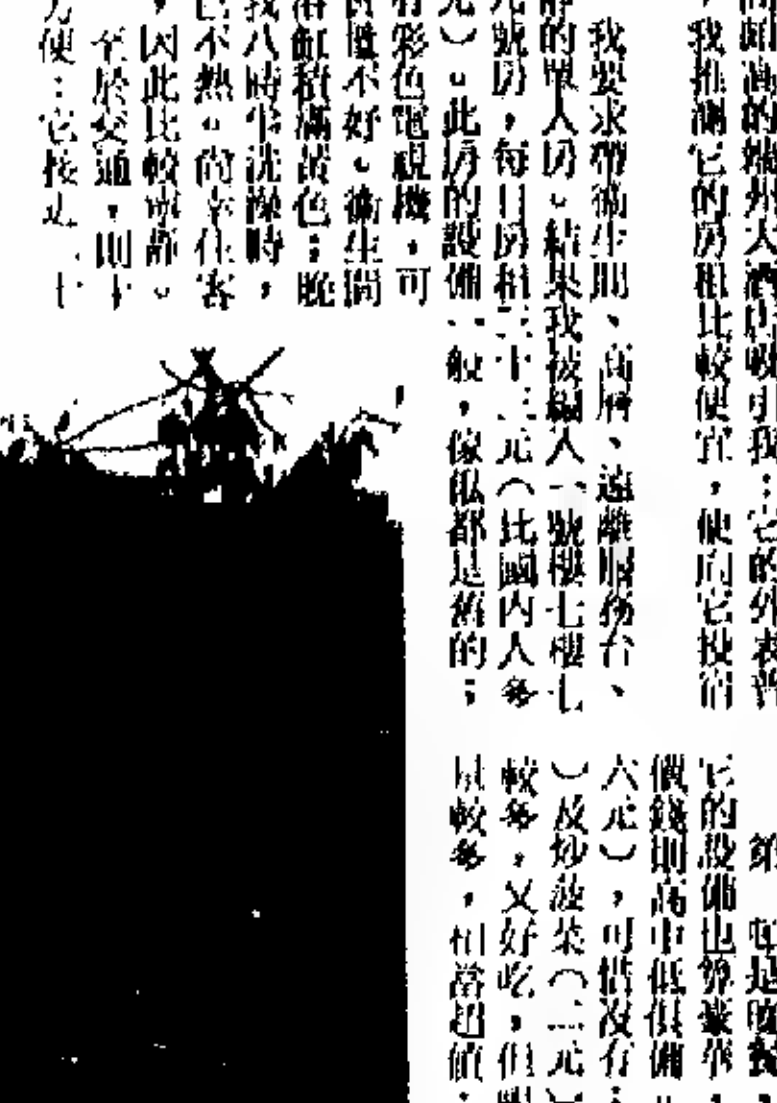 的端州大酒店吸引我：它的外表普
，我推測它的房租比較便宜，便向它投宿
我要求帶衞生間、高層、遠離服務台、
靜的單人房。結果我被編入一號樓七樓七
號房，每日房租三十三元（比國內人多
元）。此房的設備一般，傢俬都是舊的；
有彩色電視機，可
不好。衞生間
浴缸積滿黃色；晚
我八時半洗澡時，
已不熱。尚幸住客
，因此比較寧靜。
至於交通，則十
方便：它接近
頓是晚餐，
它的設備也算豪華，
價錢則高中低俱備。
六元），可惜沒有
）及炒菠菜（二元）
較多，又好吃，但
較多，相當超值；